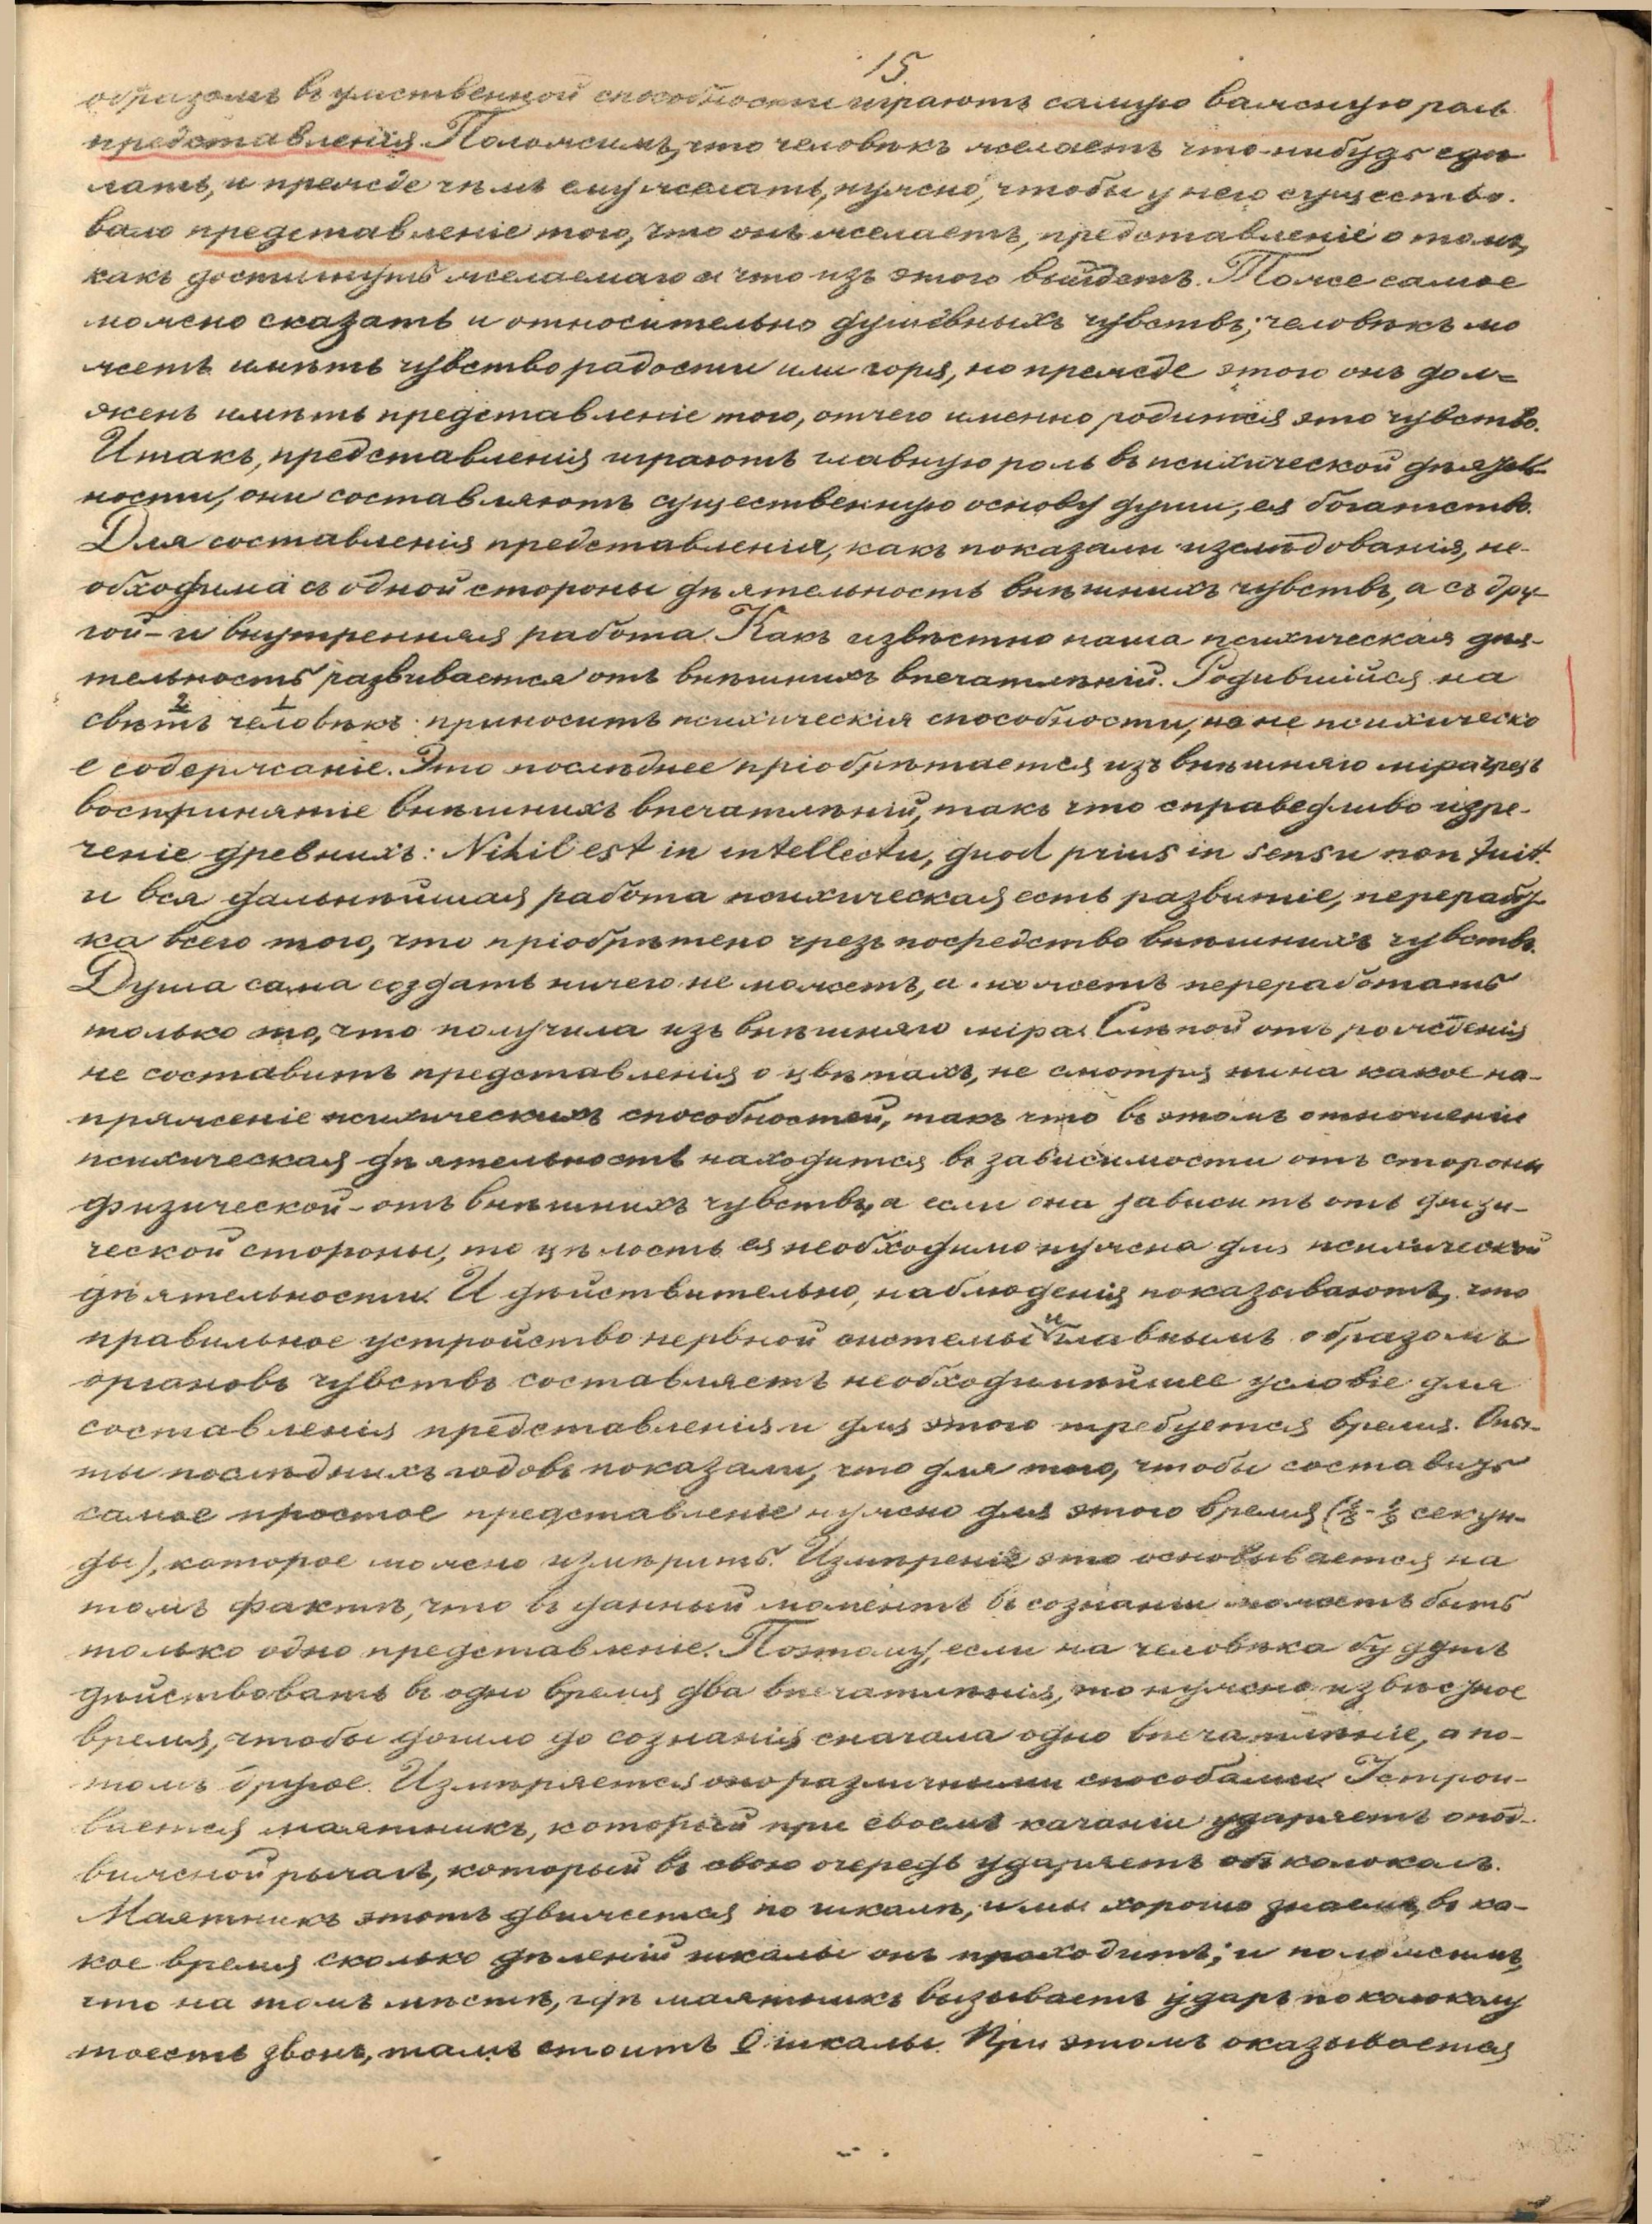 15.
образомъ въ умственной способности играютъ самую важную роль
представленія. Положимъ, что человѣкъ желаетъ что-нибудь сдѣ
лать, и прежде чѣмъ ему желать, нужно, чтобы у него существо-
вало представленіе того, что онъ желаетъ, представленіе о томъ,
какъ достигнуть желаемаго и что изъ этого выйдетъ. Тоже самое
можно сказать и относительно душевныхъ чувствъ; человѣкъ мо
жетъ имѣть чувство радости или горя, но прежде этого онъ дол=
женъ имѣть представленіе того, отчего именно родится это чувство.
Итакъ, представленія играютъ главную роль въ психической дѣятель
ности, они составляютъ существенную основу души, ея богатство.
Для составленія представленія, какъ показали изслѣдованія, не-
обходима съ одной стороны дѣятельность внѣшнихъ чувствъ, а съ дру-
гой - и внутренняя работа. Какъ извѣстно наша психическая дѣя-
тельность развивается отъ внѣшнихъ впечатлѣній. Родившійся на
2 1
свѣтъ человѣкъ приноситъ психическія способности, но не психическо
е содержаніе. Это послѣднее пріобрѣтается изъ внѣшняго міра чрезъ
воспринятіе внѣшнихъ впечатлѣній, такъ что справедливо изре-
ченіе древнихъ: Nihil est in intellectu, quod prius in sensu non fuit.
и вся дальнѣйшая работа психическая есть развитіе, переработ-
ка всего того, что пріобрѣтено чрезъ посредство внѣшнихъ чувствъ.
Душа сама создать ничего не можетъ, а можетъ переработать
только то, что получила изъ внѣшняго міра. Слѣпой отъ рожденія
не составитъ представленія о цвѣтахъ, не смотря ни на какое на-
пряженіе психическихъ способностей, такъ что въ этомъ отношеніи
психическая дѣятельность находится въ зависимости отъ стороны
физической - отъ внѣшнихъ чувствъ, а если она зависитъ отъ физи-
ческой стороны, то цѣлость ея необходимо нужна для психической
дѣятельности. И дѣйствительно, наблюденія показываютъ, что
и
правильное устройство нервной системы главнымъ образомъ
органовъ чувствъ составляетъ необходимѣйшее условіе для
составленія представленія и для этого требуется время. Опы-
ты послѣднихъ годовъ показали, что для того, чтобы составить
самое простое представленіе нужно для этого время ( секун-
ды), которое можно измѣрить. Измѣреніе это основывается на
томъ фактѣ, что въ данный моментъ въ сознаніи можетъ быть
только одно представленіе. Поэтому, если на человѣка будутъ
дѣйствовать въ одно время два впечатлѣнія, то нужно извѣстное
время, чтобы дошло до сознанія сначала одно впечатлѣніе, а по-
томъ другое. Измѣряется оно различными способами. Устраи-
вается маятникъ, который при своемъ качаніи ударяетъ о под-
вижной рычагъ, который въ свою очередь ударяетъ объ колоколъ.
Маятникъ этотъ движется по шкалѣ, и мы хорошо знаемъ, въ ка-
кое время сколько дѣленій шкалы онъ проходитъ; и положимъ,
что на томъ мѣстѣ, гдѣ маятникъ вызываетъ ударъ по колоколу
тоесть звонъ, тамъ стоитъ 0 шкалы. При этомъ оказывается